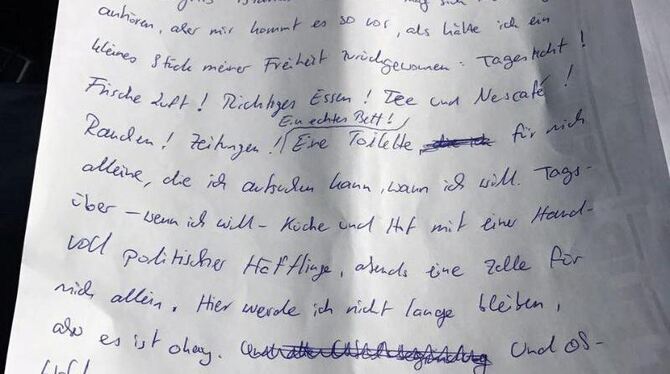 anhören, aber mir kommt es so vor, als hätte ich ein
kleines Stück meiner Freiheit zurückgewonnen: Tageslicht!
Frische Luft! Richtiges Essen! Tee und Nescafé!
Rauchen! Zeitungen! Ein echtes Bett! Eine Toilette, für mich
alleine, die ich aufsuchen kann, wann ich will. Tags-
über – wenn ich will – Küche und Hof mit einer Hand-
voll politischer Häftlinge, abends eine Zelle für
mich allein. Hier werde ich nicht lange bleiben,
also es ist okay. Und Os-